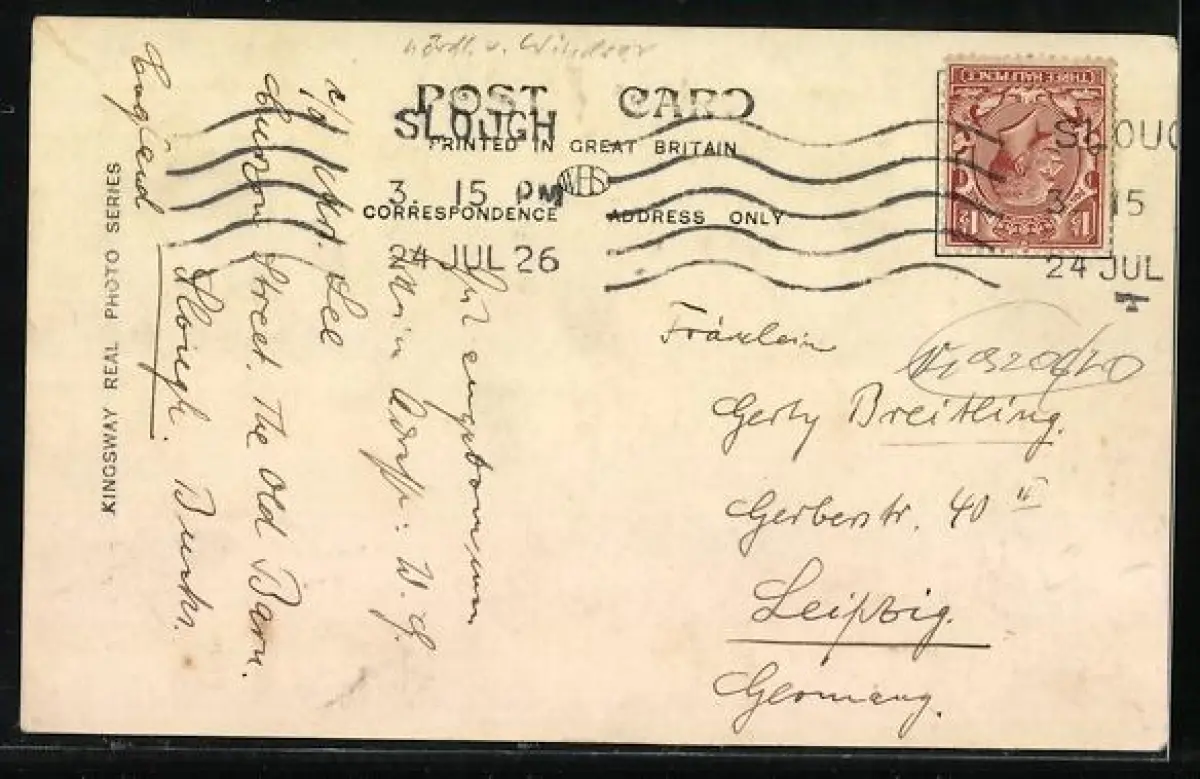 nördl. v. Windsor
POST CARD
SLOUGH
PRINTED IN GREAT BRITAIN
WHS
3. 15 PM
CORRESPONDENCE
ADDRESS ONLY
24 JUL 26
THREE HALFPENCE
SLOUG
3 15
24 JUL
KINGSWAY REAL PHOTO SERIES
Gut angekommen
Meine Adresse: W. G.
c/o Mrs. Lee
Street. The Old Barn.
Slough. Bucks.
England
Fräulein
Gerty Breitling.
Gerberstr. 40 II
Leipzig.
Germany.